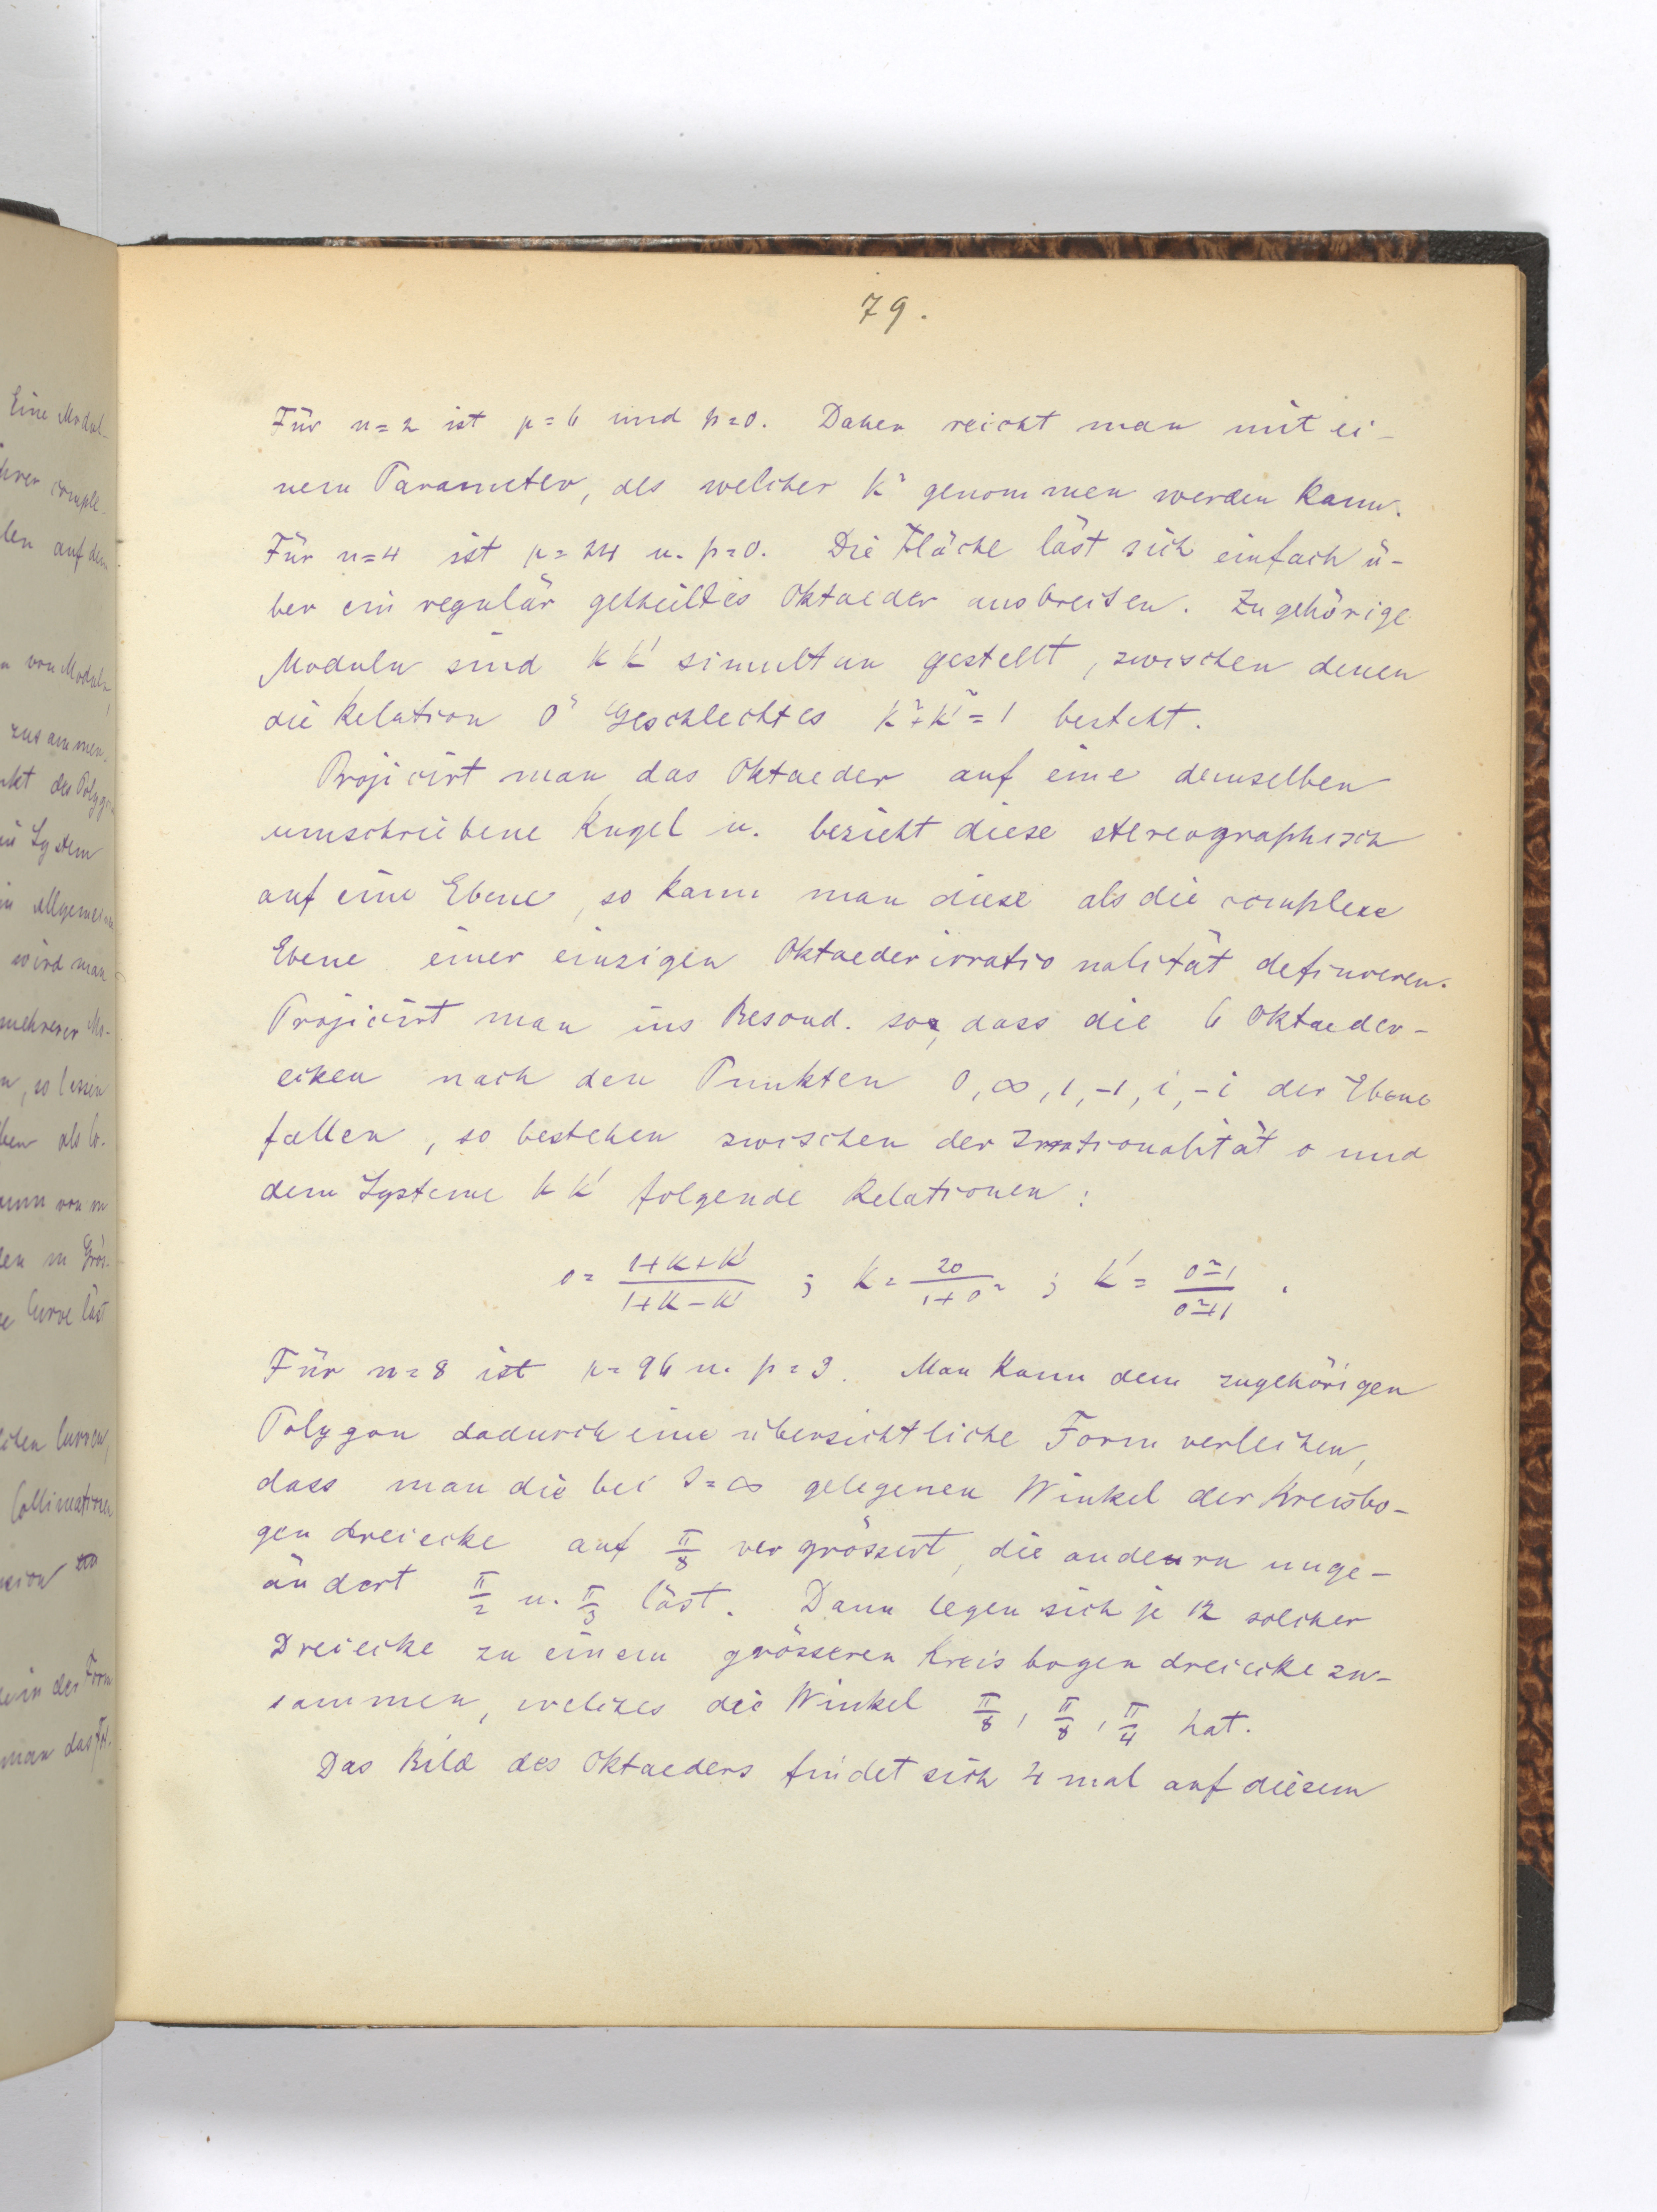 79.
Für n=2 ist μ=6 und p=0. Daher reicht man mit ei-
nem Parameter, als welcher k² genommen werden kann.
Für n=4 ist μ=24 u. p=0. Die Fläche läst sich einfach ü-
ber ein regulär getheiltes Oktaeder ausbreiten. Zugehörige
Moduln sind k k' simultan gestellt, zwischen denen
die Relation 0ⁿ Geschlechtes k²+k'²=1 besteht.
Projicirt man das Oktaeder auf eine demselben
umschriebene Kugel u. bezieht diese stereographisch
auf eine Ebene, so kann man diese als die complexe
Ebene einer einzigen Oktaederirrationalität definieren.
Projicirt man ins Besond. so, dass die 6 Oktaeder-
ecken nach den Punkten 0, ∞, 1, -1, i, -i der Ebene
fallen, so bestehen zwischen der Irrationalität o und
dem Systeme k k' folgende Relationen:
o = (1+k+k')/(1+k-k') ; k = 2o/(1+o²) ; k' = (o²-1)/(o²+1) .
Für n=8 ist μ=96 u. p=3. Man kann dem zugehörigen
Polygon dadurch eine übersichtliche Form verleihen,
dass man die bei J=∞ gelegenen Winkel der Kreisbo-
gendreiecke auf π/8 vergrössert, die andern unge-
ändert π/2 u. π/3 läst. Dann legen sich je 12 solcher
Dreiecke zu einem grösseren Kreisbogendreiecke zu-
sammen, welches die Winkel π/8, π/8, π/4 hat.
Das Bild des Oktaeders findet sich 4 mal auf diesem
Eine Modul-
ihrer comple-
len auf den
von Moduln,
zusammen
des Polygo
System
Allgemeinen
wird man
mehrerer Mo-
so lassen
als Co-
von
Grös-
Curve läst
Curven,
Collineationen
der Form
man das